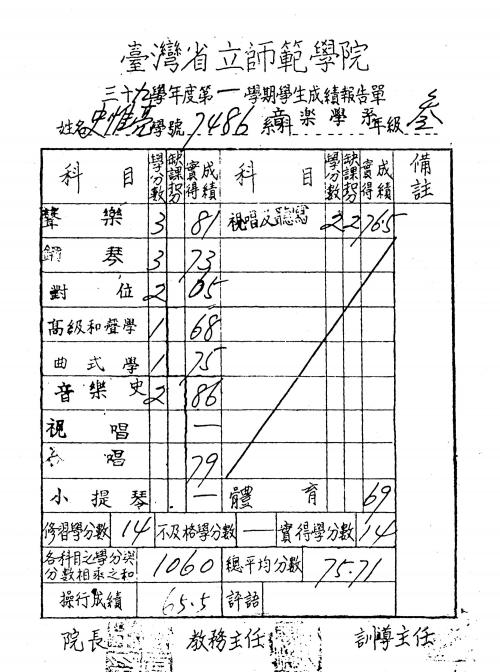 臺灣省立師範學院
三十九學年度第一學期學生成績報告單
姓名 史惟亮 學號 7486 系科 音樂學系 年級 叁
科目 學分數 缺課扣分 實得成績 科目 學分數 缺課扣分 實得成績 備註
聲樂 3 81 視唱及聽寫 2 2 76.5
鋼琴 3 73
對位 2 65
高級和聲學 1 68
曲式學 1 75
音樂史 2 86
視唱 —
合唱 79
小提琴 — 體育 69
修習學分數 14 不及格學分數 — 實得學分數 14
各科目之學分與分數相乘之和 1060 總平均分數 75.71
操行成績 65.5 評語
院長 教務主任 訓導主任